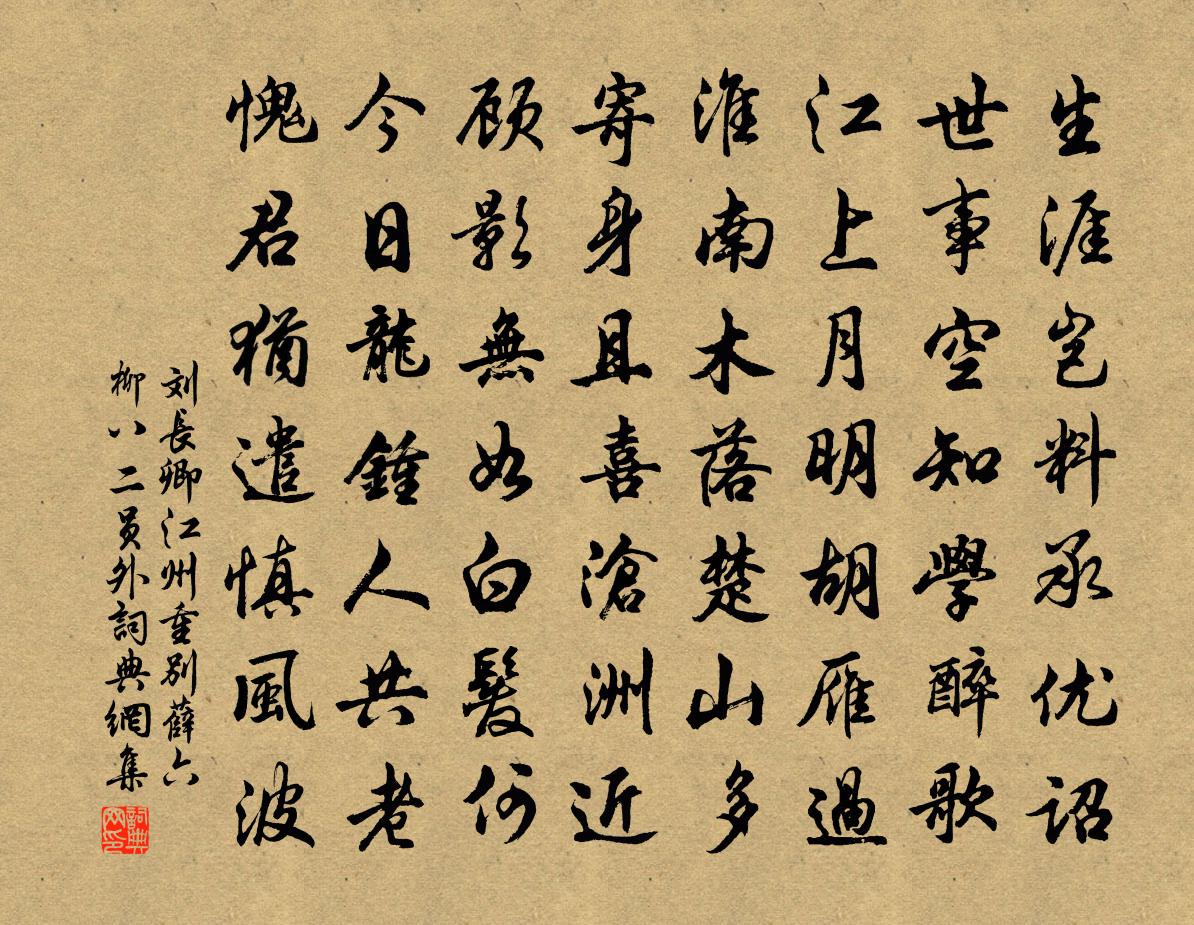 生涯岂料承优诏
世事空知學醉歌
江上月明胡雁過
淮南木落楚山多
寄身且喜滄洲近
顾影無如白髮何
今日龍鍾人共老
愧君猶遣慎風波
刘長卿江州重别薛六
柳八二员外詞典網集
詞典网印